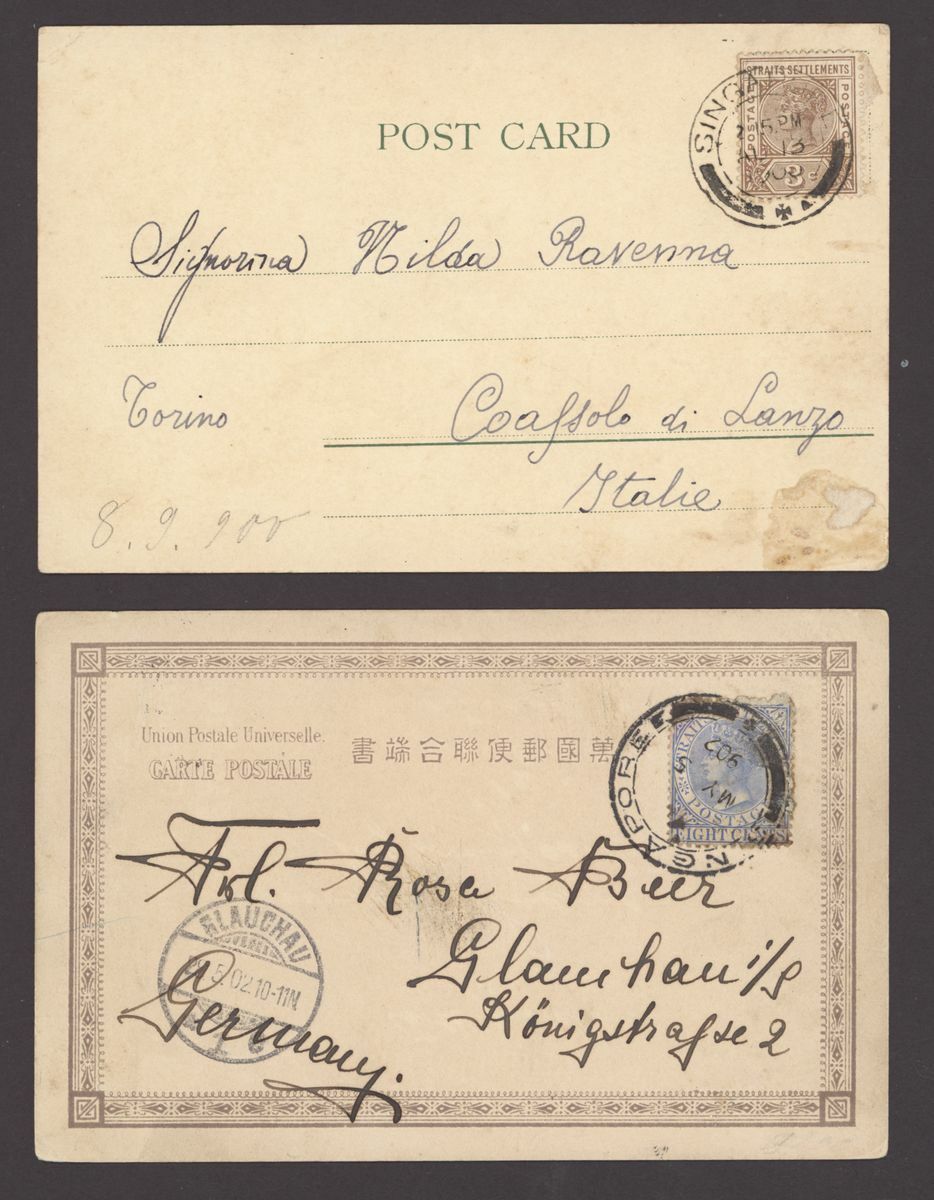 POST CARD
STRAITS SETTLEMENTS
POSTAGE
POSTAGE
3
SINGA
15. PM
13
Signorina Nilda Ravenna
Torino Coassolo di Lanzo
Italie
8. 9. 900
Union Postale Universelle.
CARTE POSTALE
書端合聯便郵國萬
SINGAPORE
MY
5
902
POSTAGE
EIGHT CENTS
Frl. Rosa Beer
GLAUCHAU
5. 02. 10-11N.
Glauchau i/S
Königstraße 2
Germany.